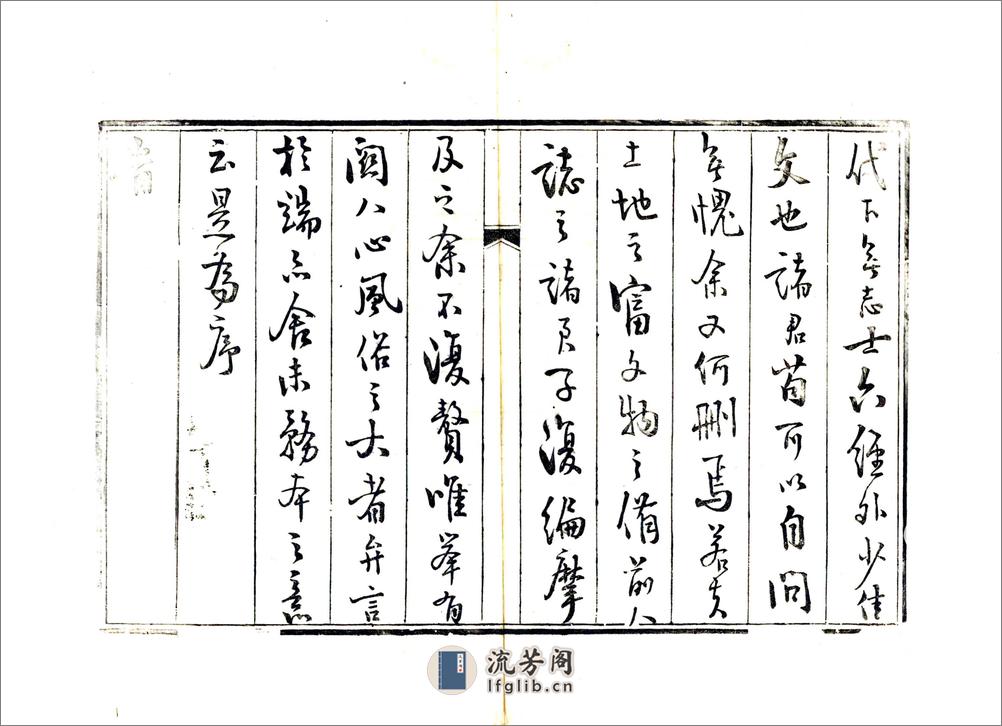 代下無志士六經外少佳
文也諸君苟可以自問
無愧余又何刪焉若夫
土地之富文物之備前人
誌之諸頁子復編摩
及之余不復贅唯舉有
關人心風俗之大者弁言
於端亦舍末務本之意
云是為序
流芳阁
lfglib.cn